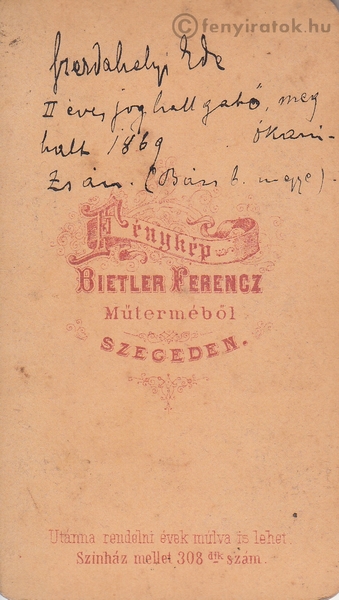 © fenyiratok.hu
Szerdahelyi Ede
II éves joghallgató, meg
halt 1869 Ókani-
zsán. (Bács b. megye).
Fénykép
BIETLER FERENCZ
Műterméből
SZEGEDEN.
Utánna rendelni évek mulva is lehet.
Szinház mellet 308 dik szám.